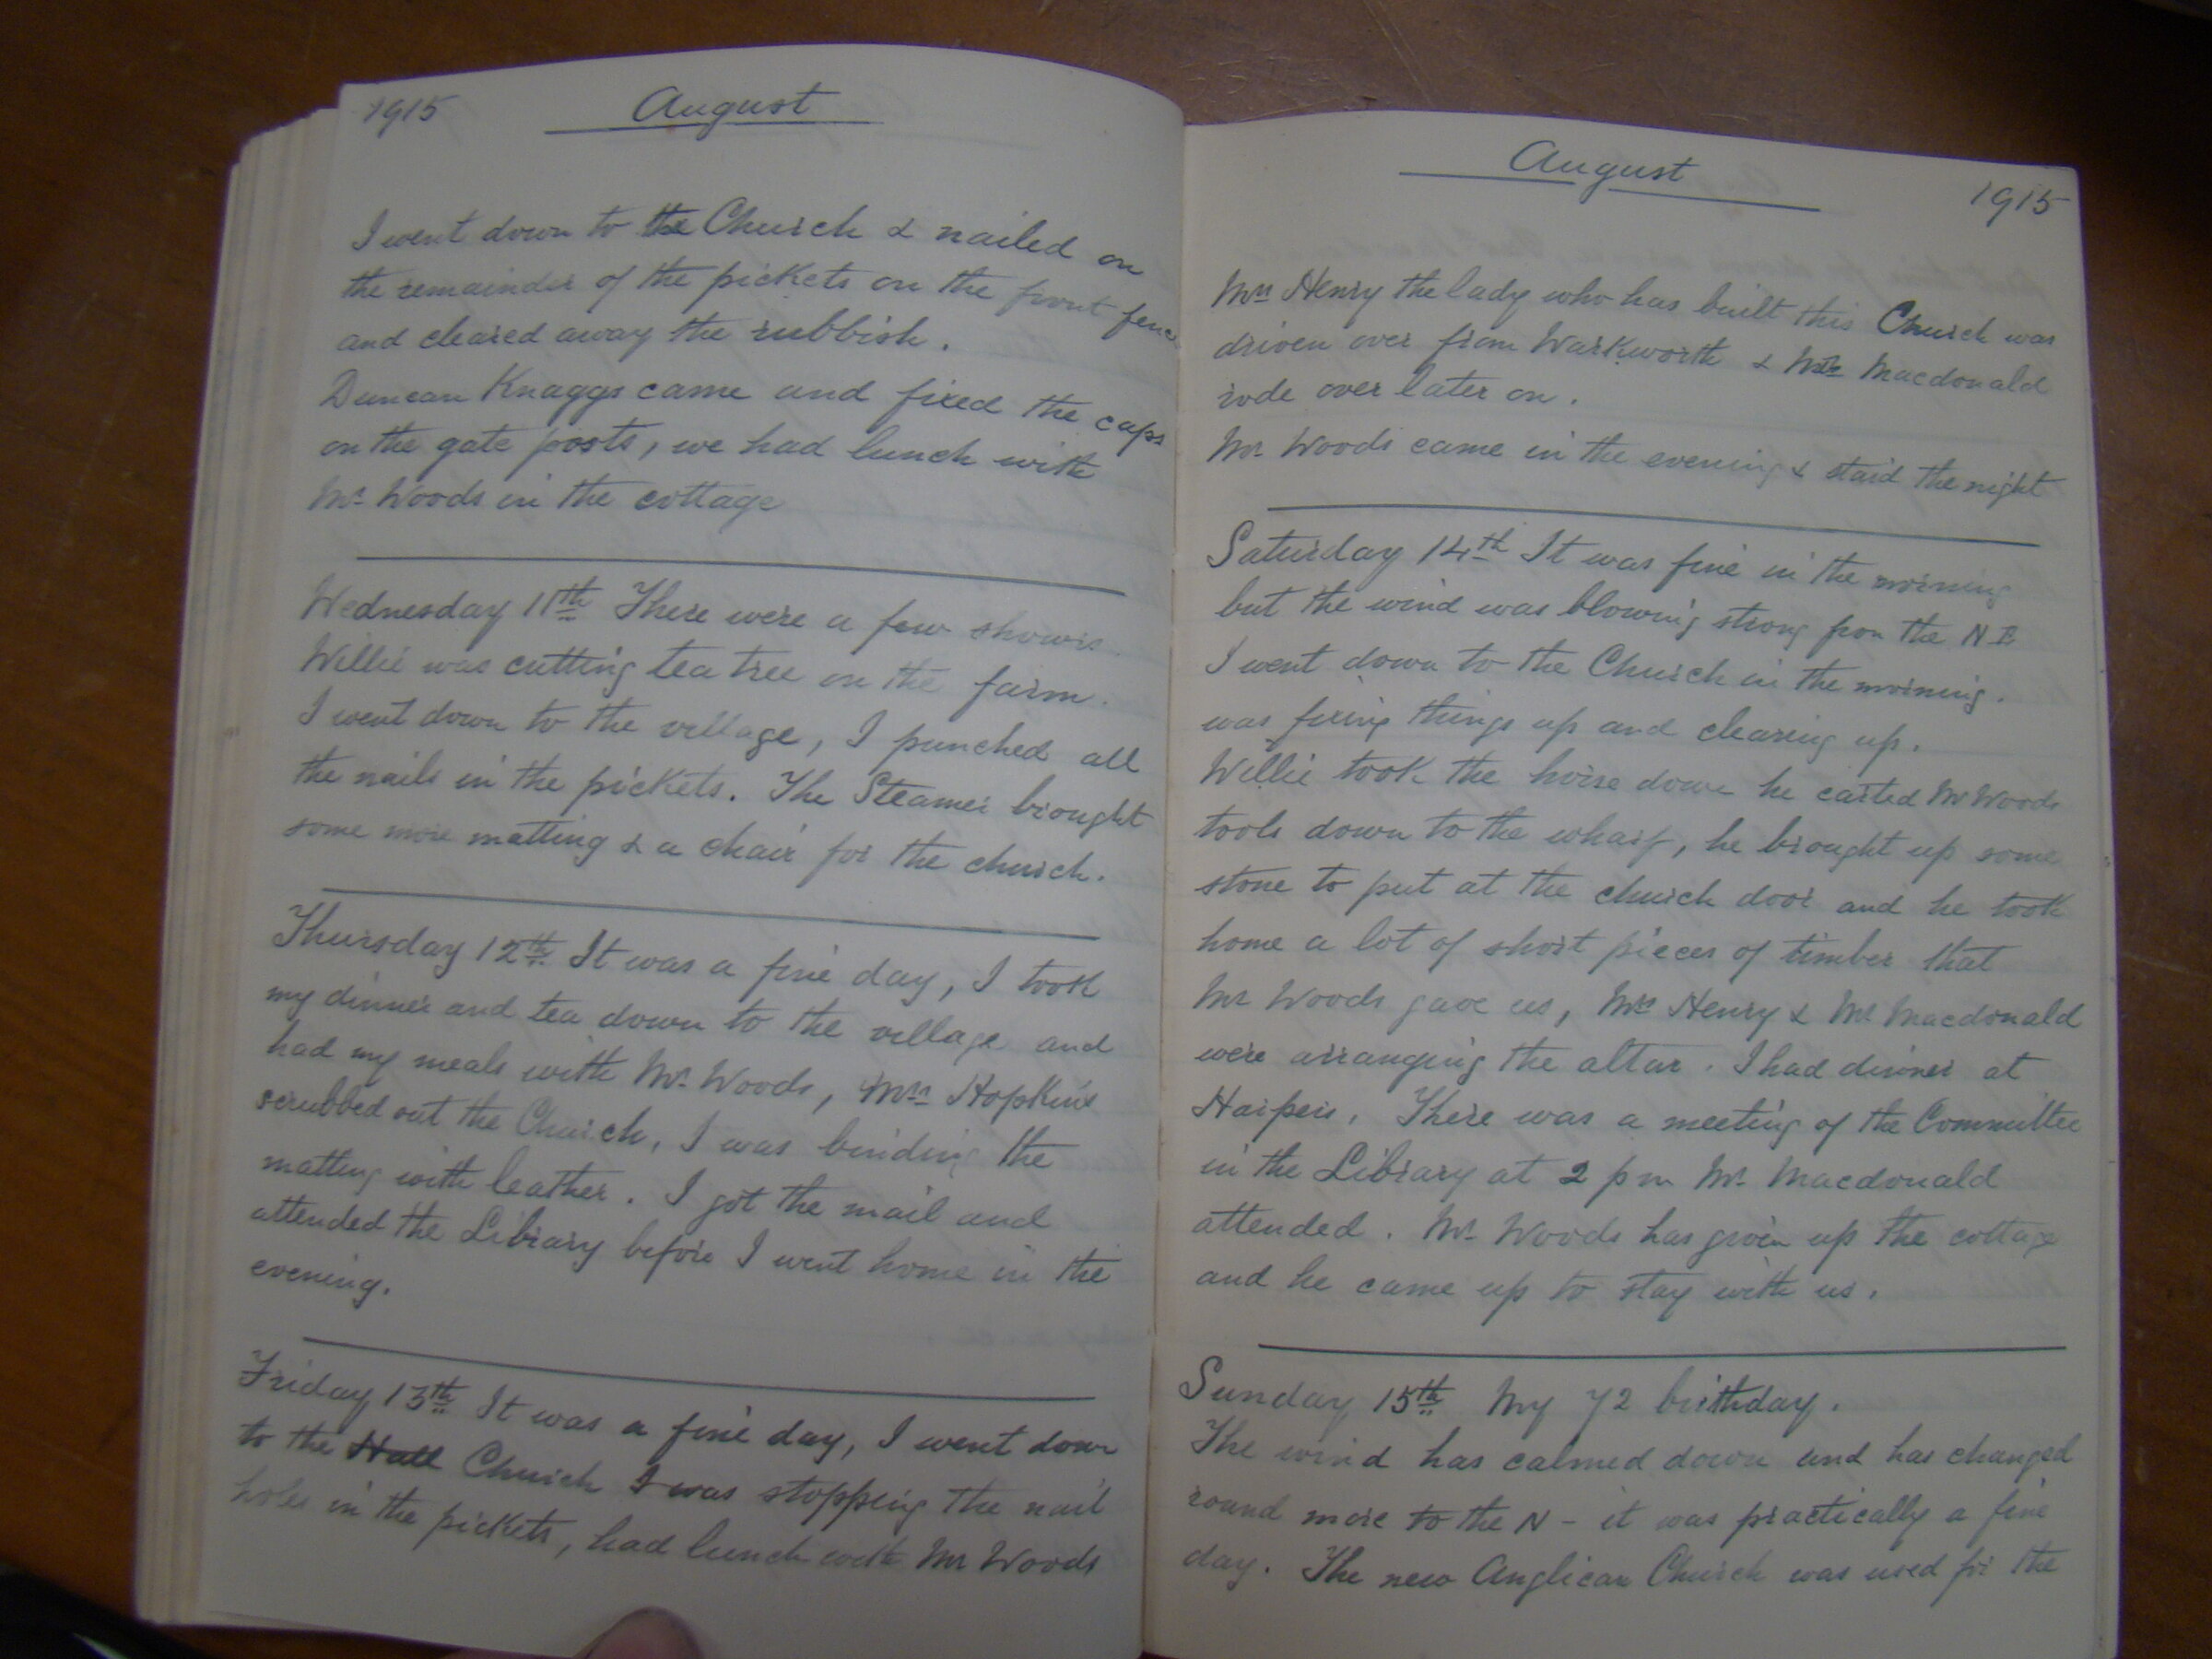 1915 August
I went down to the Church & nailed on
the remainder of the pickets on the front fence
and cleared away the rubbish.
Duncan Knaggs came and fixed the caps
on the gate posts, we had lunch with
Mr Woods in the cottage
Wednesday 11th There were a few showrs.
Willie was cutting tea tree on the farm.
I went down to the village, I punched all
the nails in the pickets. The Steamer brought
some more matting & a chair for the church.
Thursday 12th It was a fine day, I took
my dinner and tea down to the village and
had my meals with Mr Woods, Mrs Hopkins
scrubbed out the Church, I was binding the
matting with leather. I got the mail and
attended the Library before I went home in the
evening.
Friday 13th It was a fine day, I went down
to the Hall Church I was stopping the nail
holes in the pickets, had lunch with Mr Woods
August 1915
Mrs Henry the lady who has built this Church was
driven over from Warkworth & Mr Macdonald
rode over later on.
Mr Woods came in the evening & staid the night
Saturday 14th It was fine in the morning
but the wind was blowing strong from the N.E
I went down to the Church in the morning.
was fixing things up and clearing up.
Willie took the horse down he carted Mr Woods
tools down to the wharf, he brought up some
stone to put at the church door and he took
home a lot of short pieces of timber that
Mr Woods gave us, Mrs Henry & Mr Macdonald
were arranging the altar. I had dinner at
Harpers. There was a meeting of the Committee
in the Library at 2 pm Mr Macdonald
attended. Mr Woods has given up the cottage
and he came up to stay with us.
Sunday 15th My 72 birthday.
The wind has calmed down and has changed
round more to the N - it was practically a fine
day. The new Anglican Church was used for the